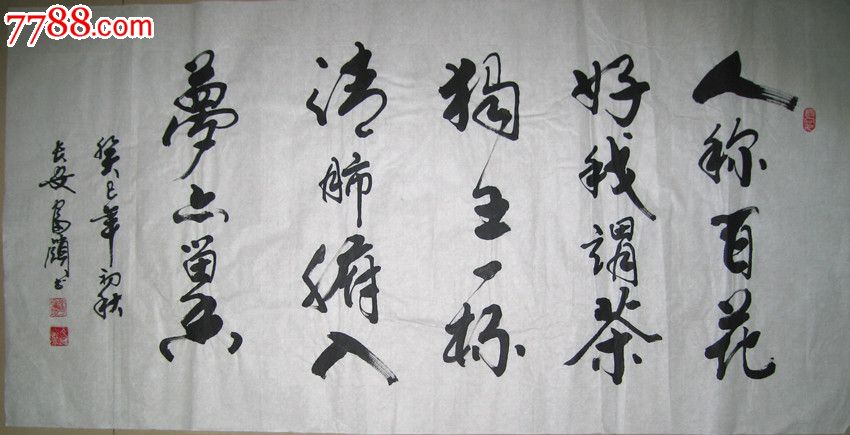 7788.com
人称百花
好我謂茶
獨王一杯
清肺腑入
夢亦留香
癸巳年初秋
长安
书